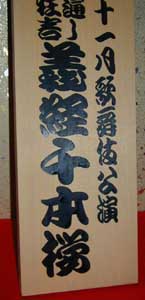 十一月歌舞伎公演
通し狂言
義経千本桜